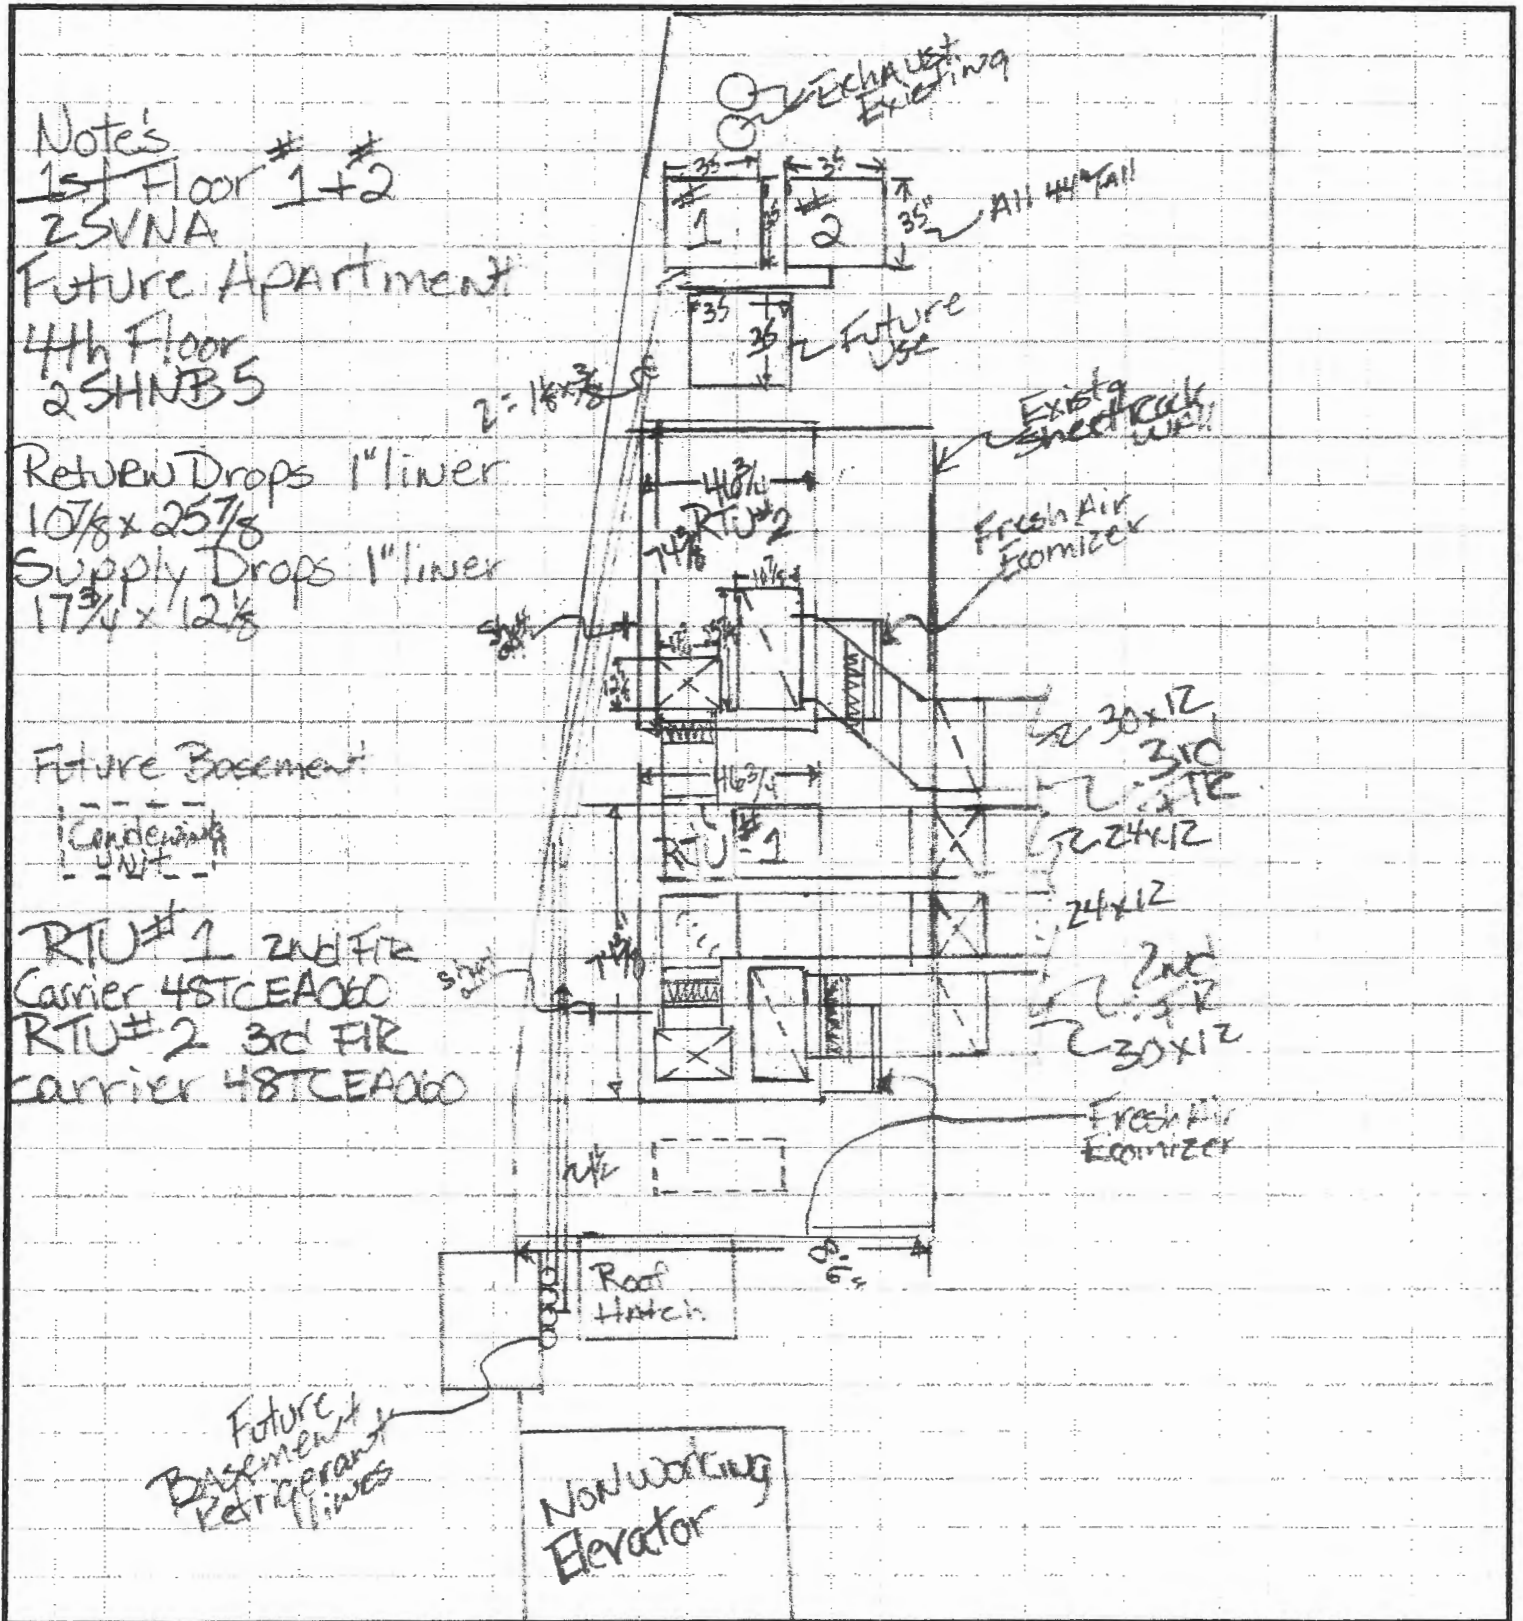 Note's
1st Floor #1 + #2
25VNA
Future Apartment
4th Floor
25HNB5
Return Drops 1" liner
10 7/8 x 25 7/8
Supply Drops 1" liner
17 3/4 x 12 1/8
Future Basement
Condensing
Unit
RTU# 1 2nd Flr
Carrier 48TCEA060
RTU# 2 3rd Flr
Carrier 48TCEA060
Exhaust
Existing
35
35
# 1
35
# 2
35"
All 44" Tall
35
35
Future
Use
2 = 1 1/8 x 3/8
Exist'g
Sheetrock
Wall
46 3/4
RTU# 2
74 3/8
10 7/8
Fresh Air
Ecomizer
30x12
3rd
Flr
24x12
46 3/4
RTU# 1
74 3/8
24x12
2nd
Flr
30x12
Fresh Air
Ecomizer
8'-6"
Roof
Hatch
Future
Basement
Refrigerant
lines
Non Working
Elevator